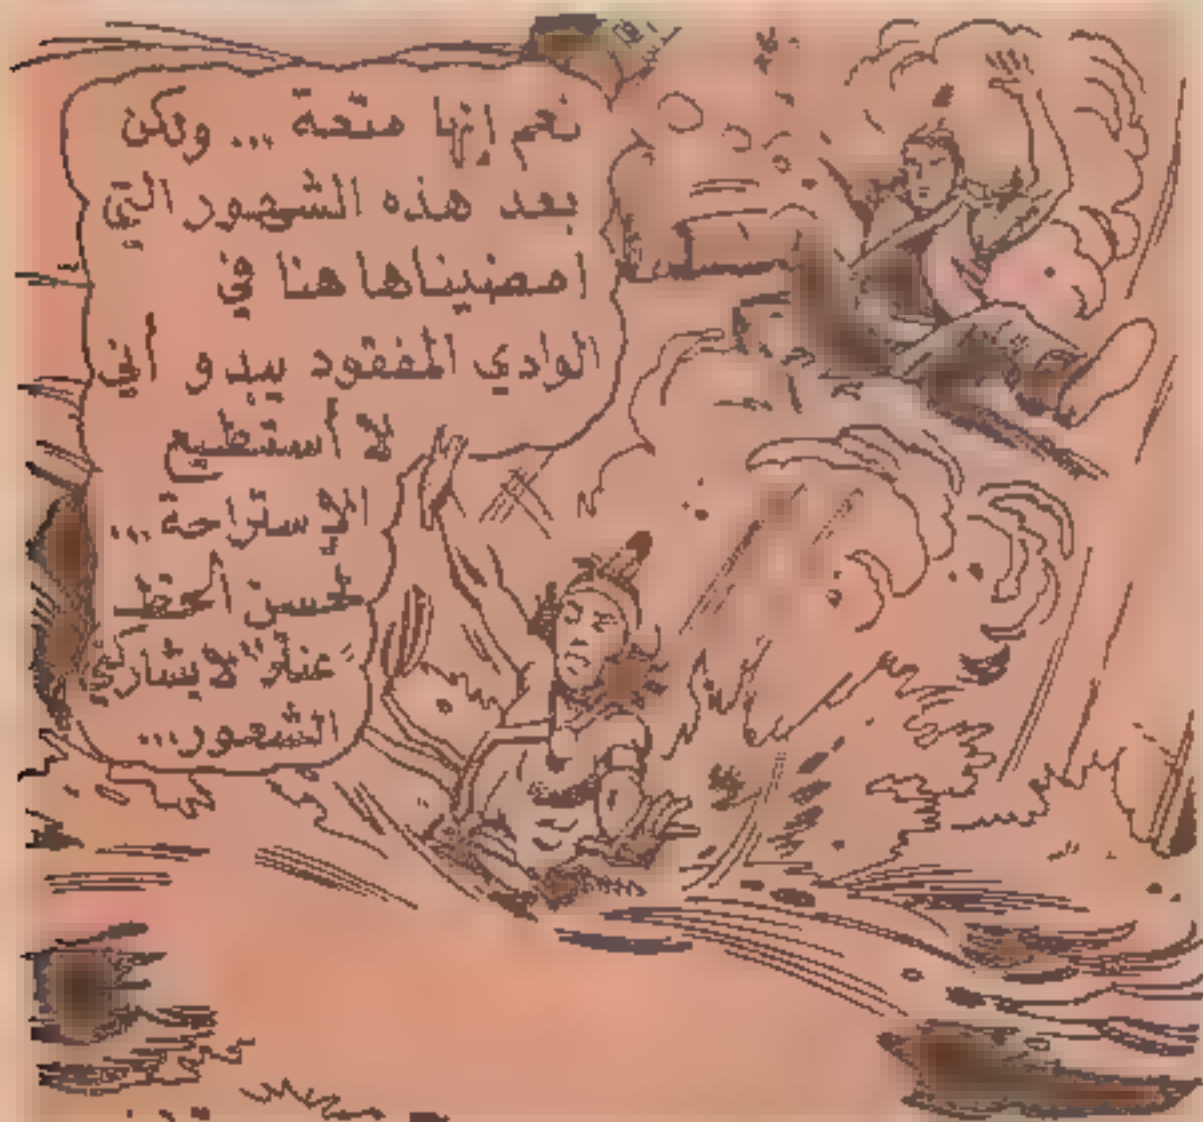 نعم إنها متعة ... ولكن
بعد هذه الشهور التي
امضيناها هنا في
الوادي المفقود يبدو أني
لا أستطيع
الإستراحة ...
لحسن الحظ
لا يشاركني
الشعور...